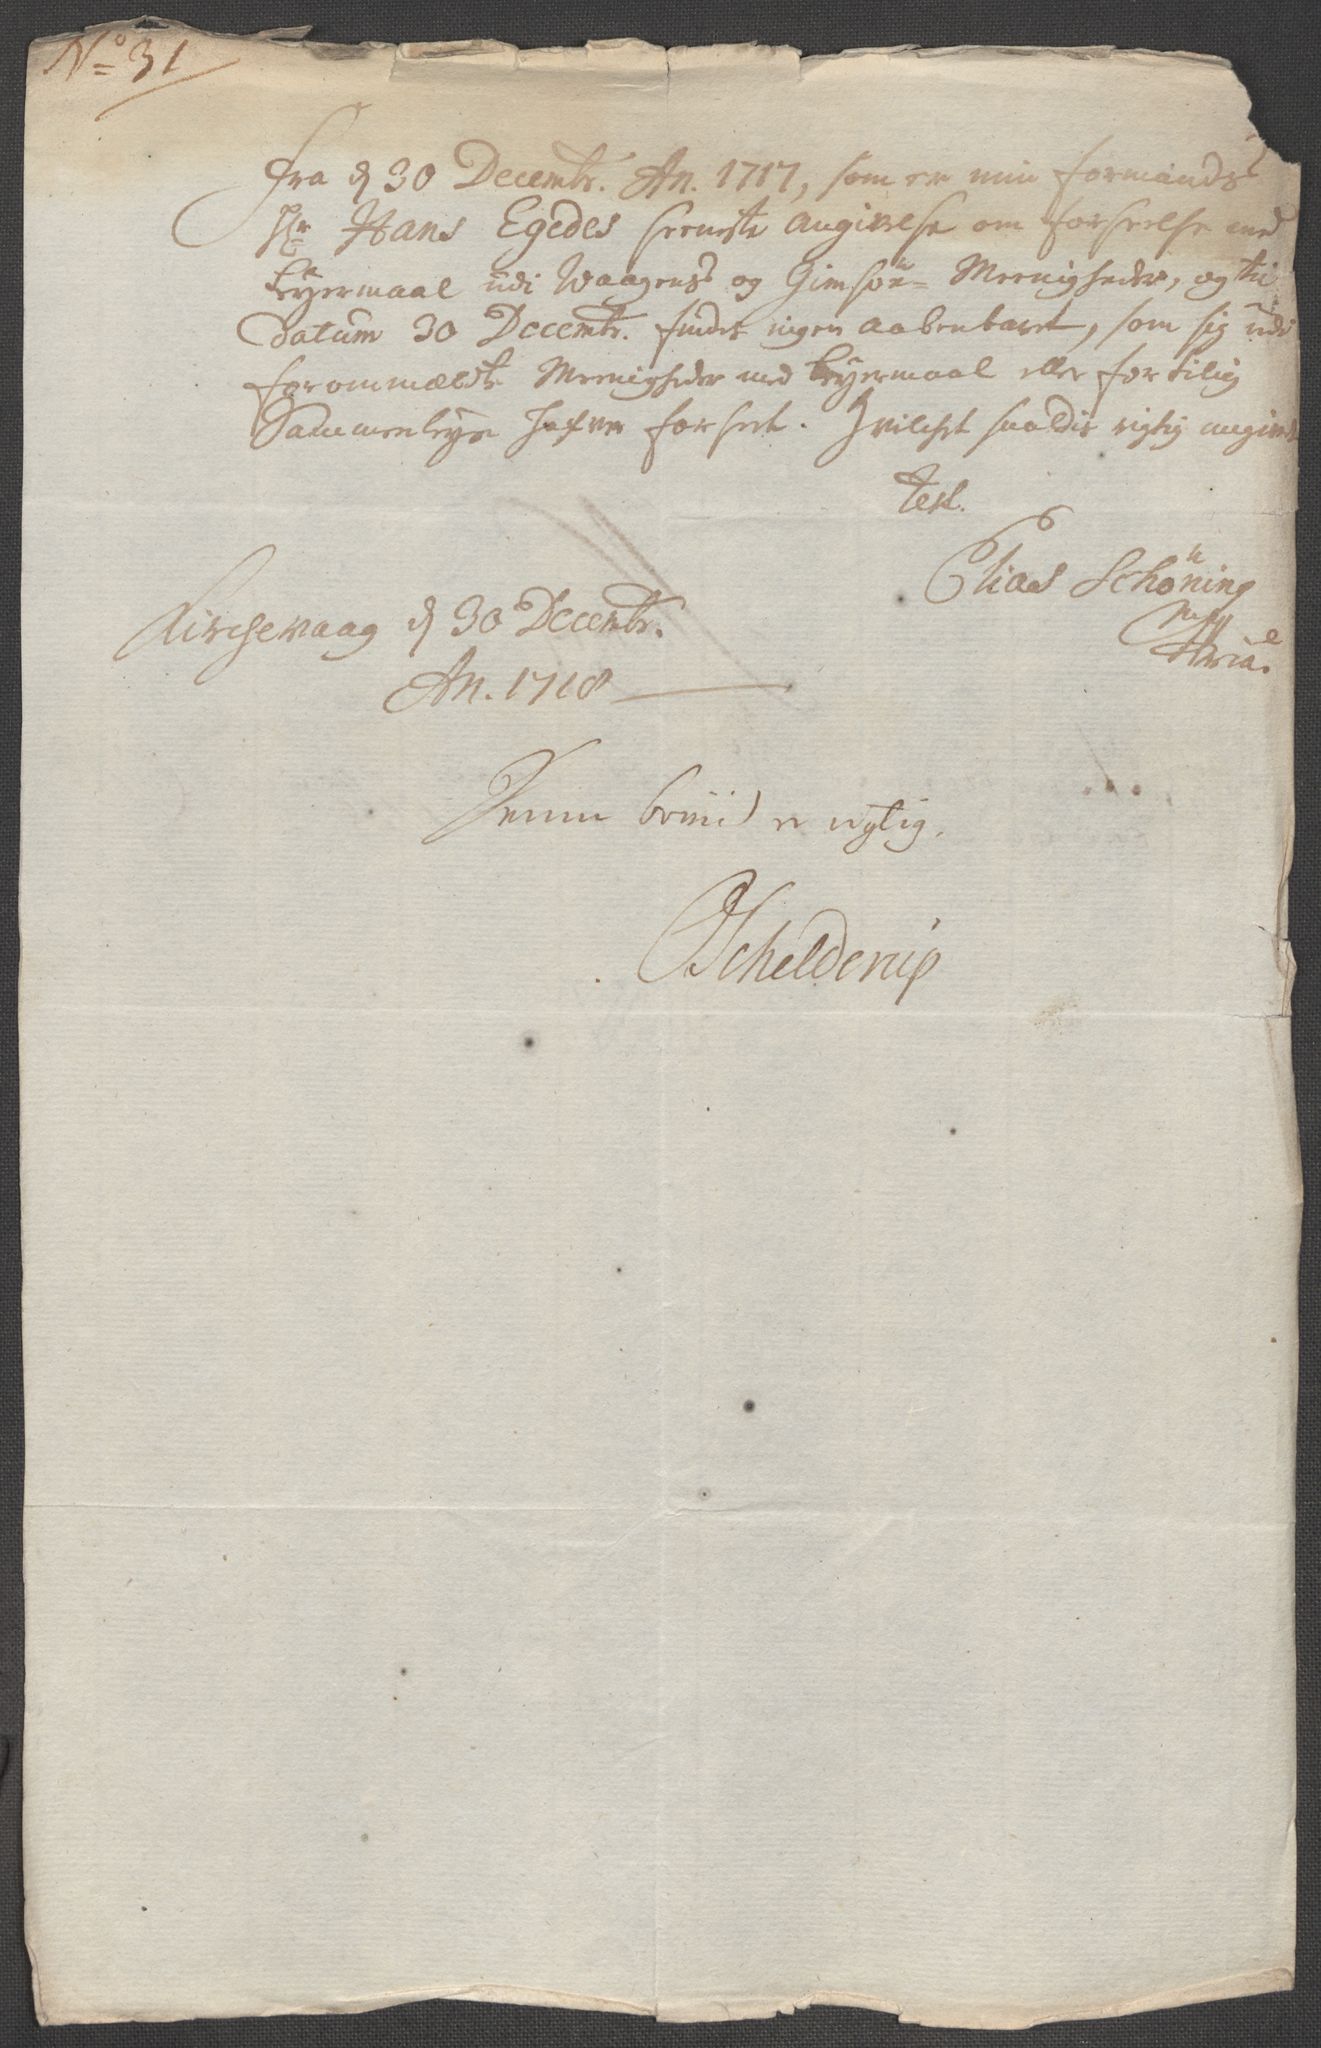 No 31
Fra d 30 Decembr. An. 1717, som er min formands
Hr Hans Egedes seeneste angivelse om forseelse med
Leyermaal udi Waagens og Gimsöe= Meenigheder, og til
datum 30 Decembr. findes ingen aabenbaret, som sig udi
forommældte Meenigheder med Leyermaal eller for tilig
Sammenleye hafver forseet. Hvilchet saaledis rigtig angives
Test.
Elias Schöning
Kirchevaag d 30 Decembr.
An. 1718
Denne er rigtig.
Schelderup